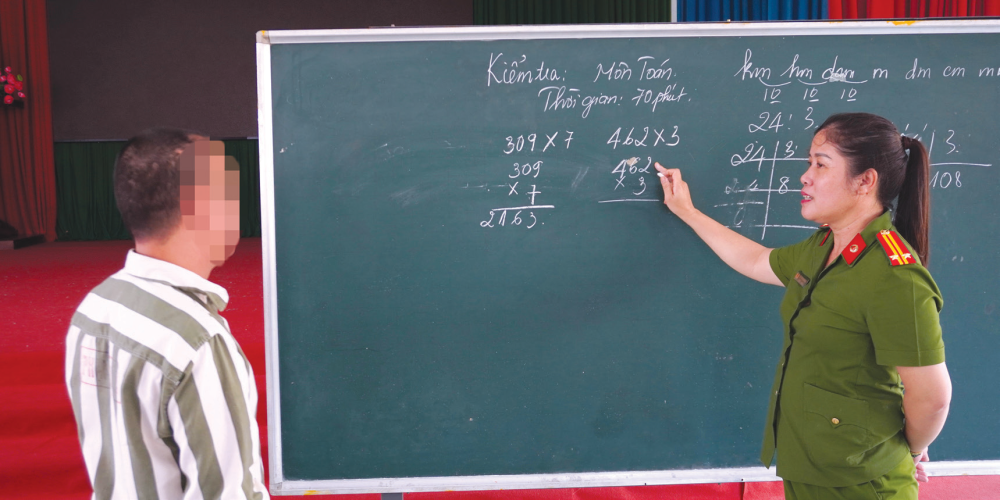 Kiểm tra: Môn Toán.
Thời gian: 70 phút.
309 x 7
309
x 7
2163.
462 x 3
462
x 3
km hm dam m dm cm
10 10 10
24 : 3
24 3
8
0
3
108